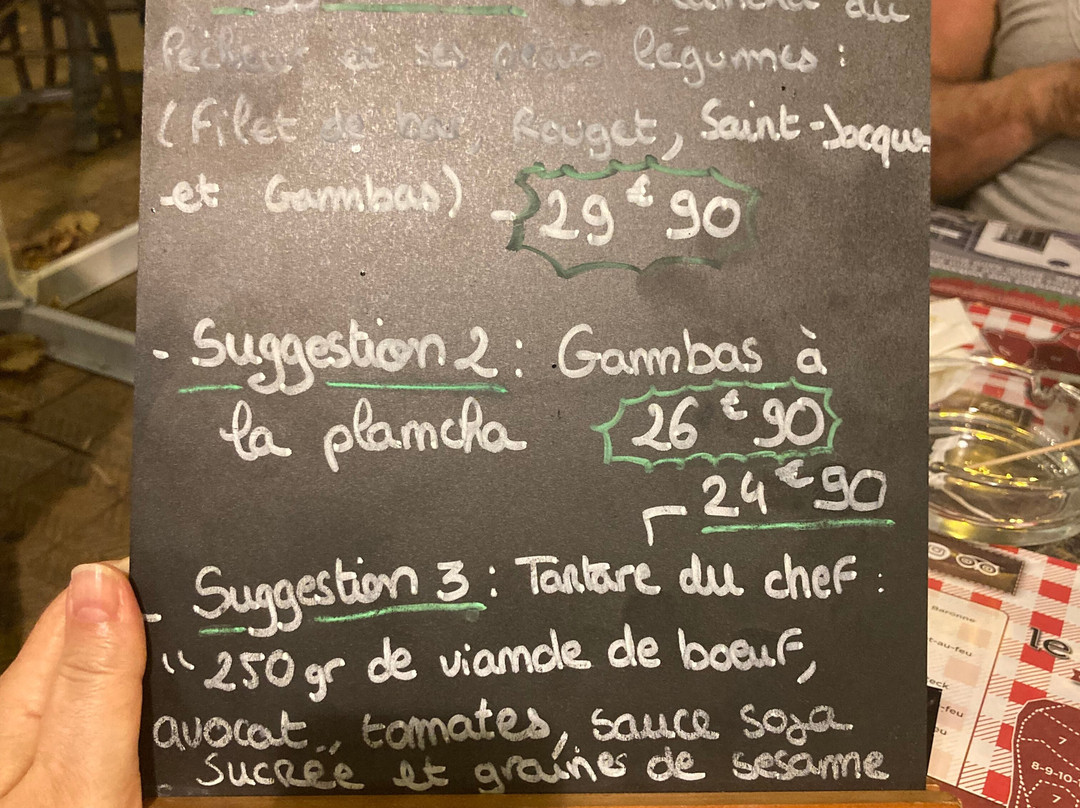 du
Pêcheur et ses petits légumes :
(Filet de bar, Rouget, Saint-Jacques
et Gambas) - 29€90
- Suggestion 2 : Gambas à
la plancha 26€90
24€90
- Suggestion 3 : Tartare du chef :
" 250 gr de viande de boeuf,
avocat, tomates, sauce soja
sucrée et graines de sesame
Baronne
-au-feu
le
7
8-9-10-
7